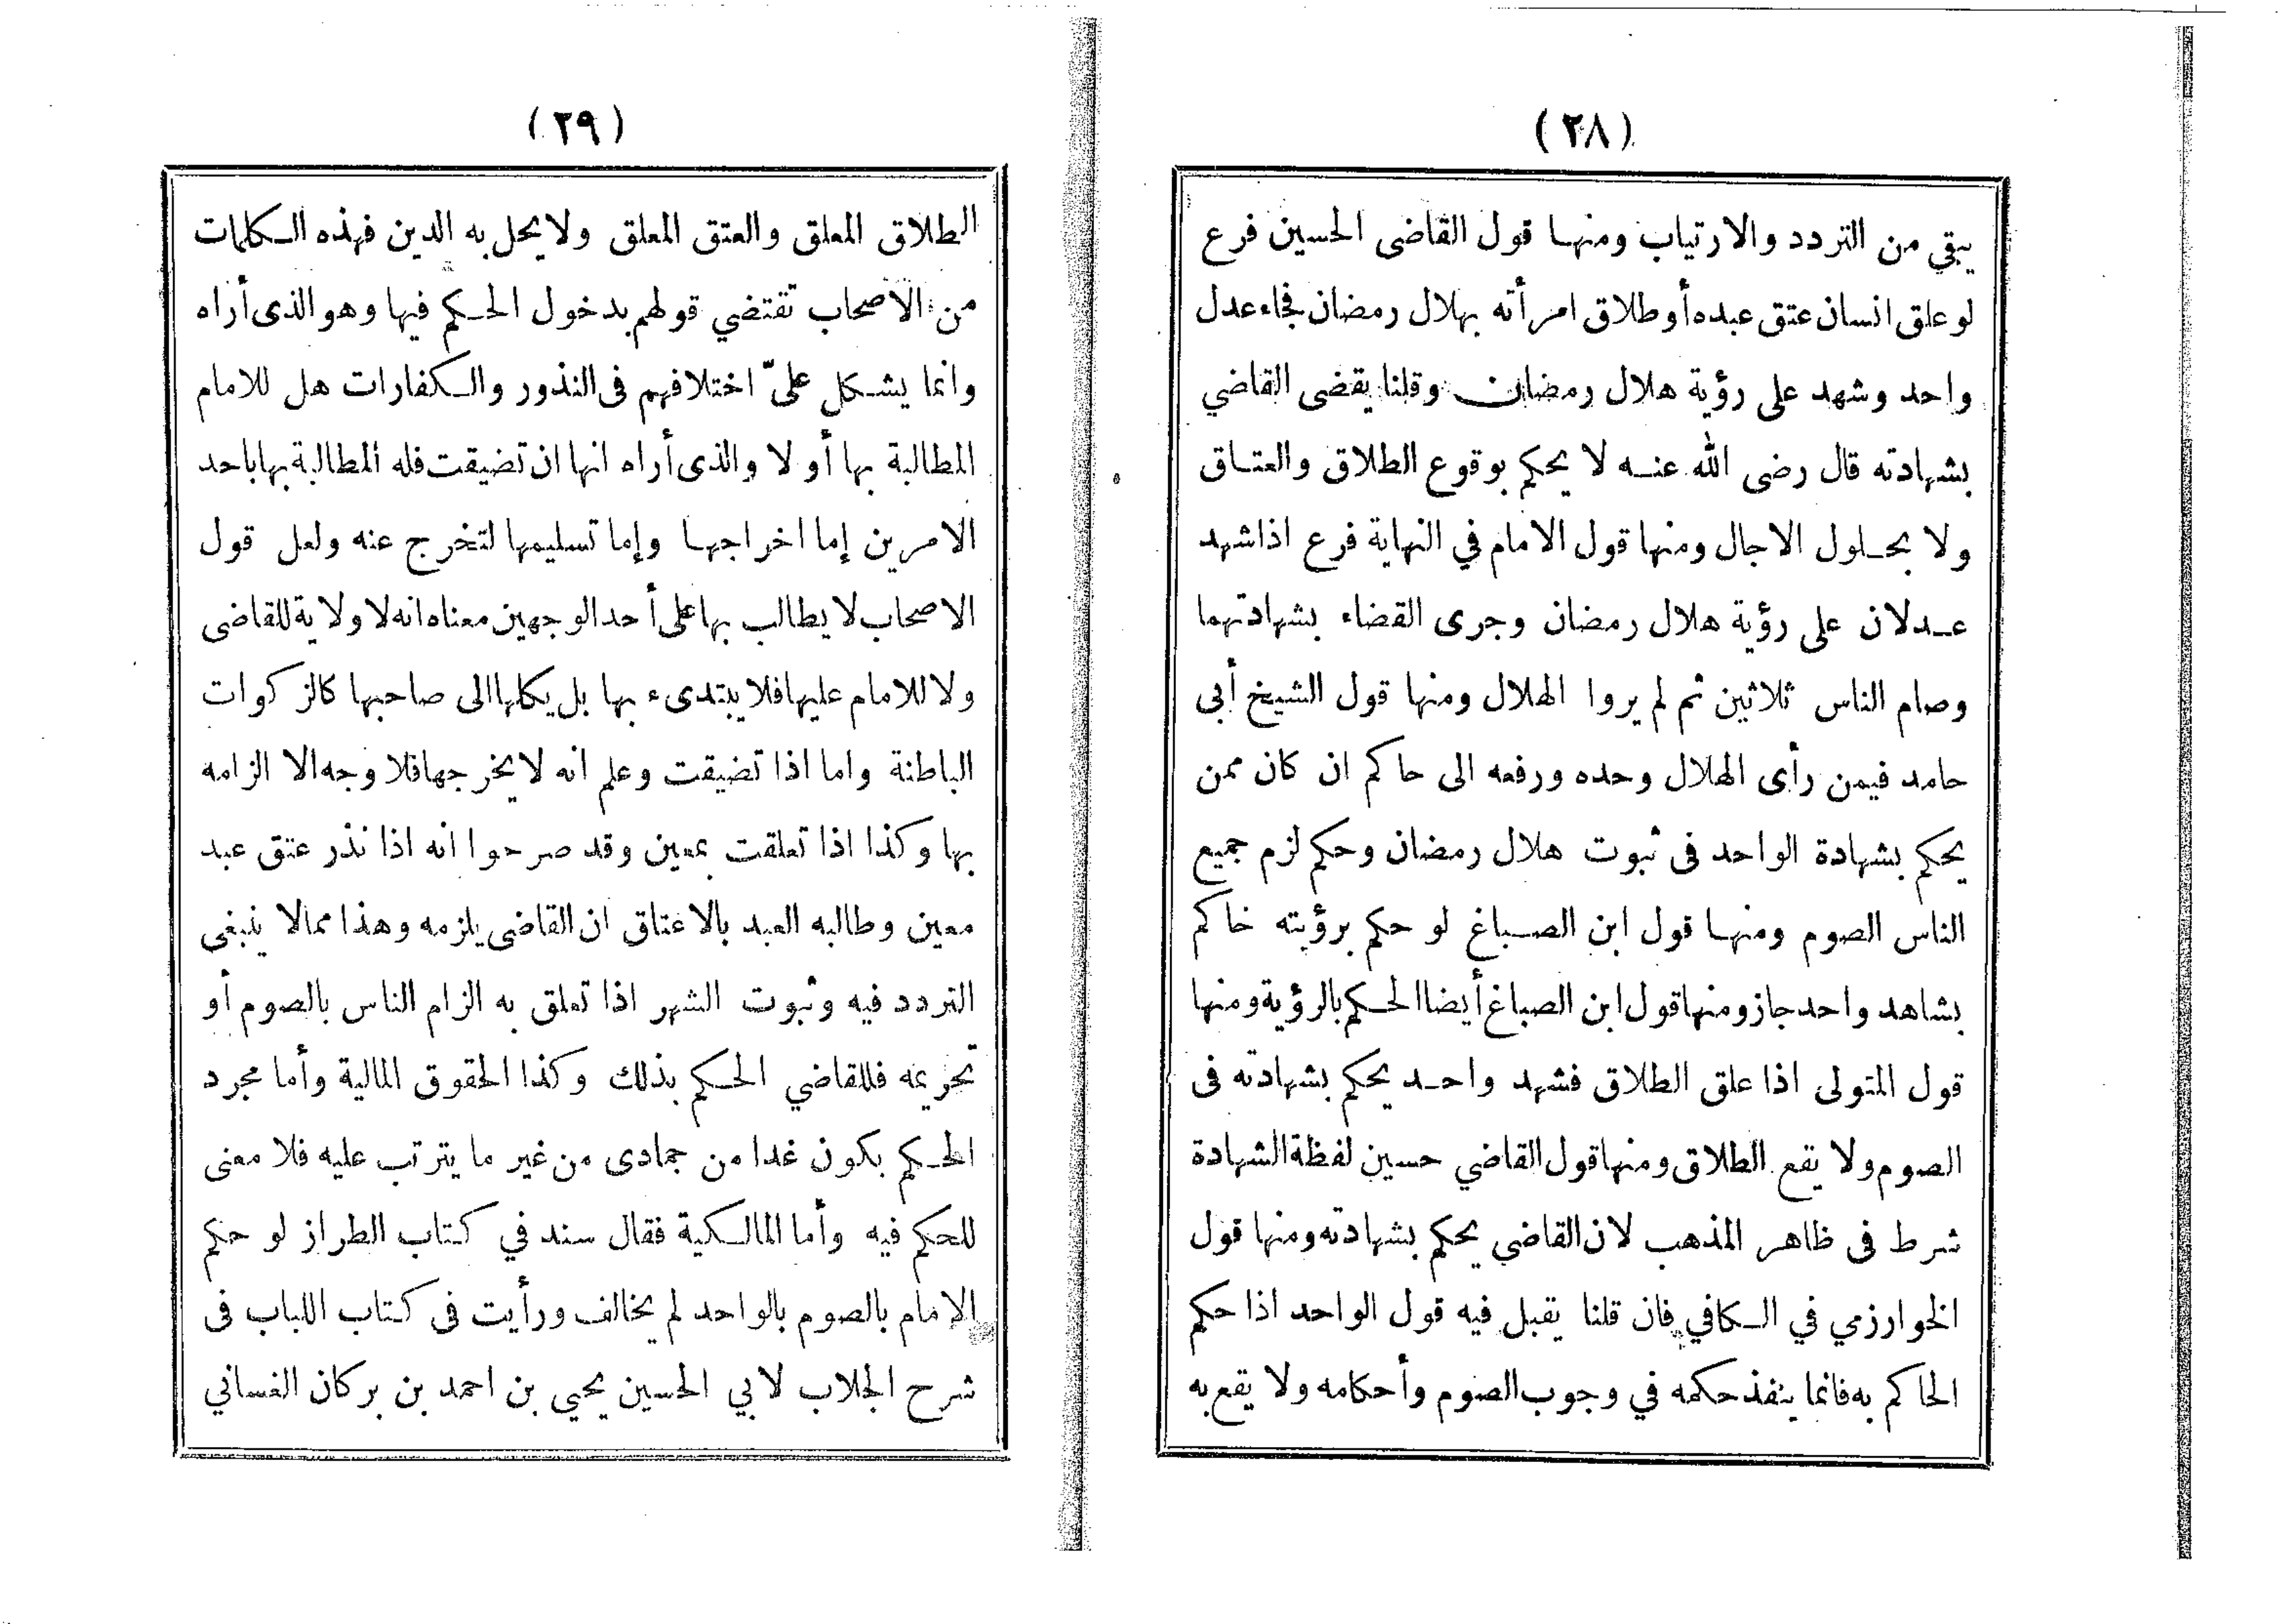 (٢٨)
يبقي من التردد والارتياب ومنهـا قول القاضى الحسين فرع
لو علق انسان عتق عبده أو طلاق امرأته بهلال رمضان فجاء عدل
واحد وشهد على رؤية هلال رمضان وقلنا يقضى القاضي
بشهادته قال رضى الله عنـه لا يحكم بوقوع الطلاق والعتـاق
ولا بحـلول الاجال ومنها قول الامام في النهاية فرع اذا شهد
عـدلان على رؤية هلال رمضان وجرى القضاء بشهادتهما
وصام الناس ثلاثين ثم لم يروا الهلال ومنها قول الشيخ أبي
حامد فيمن رأى الهلال وحده ورفعه الى حاكم ان كان ممن
يحكم بشهادة الواحد فى ثبوت هلال رمضان وحكم لزم جميع
الناس الصوم ومنهـا قول ابن الصـباغ لو حكم برؤيته حاكم
بشاهد واحد جاز ومنها قول ابن الصباغ أيضا الحـكم بالرؤية ومنها
قول المتولى اذا علق الطلاق فشهد واحـد يحكم بشهادته فى
الصوم ولا يقع الطلاق ومنها قول القاضي حسين لفظة الشهادة
شرط فى ظاهر المذهب لان القاضي يحكم بشهادته ومنها قول
الخوارزمي في الـكافي فان قلنا يقبل فيه قول الواحد اذا حكم
الحاكم به فانما ينفذ حكمه في وجوب الصوم وأحكامه ولا يقع به
(٢٩)
الطلاق المعلق والعتق المعلق ولا يحل به الدين فهذه الـكلمات
من الاصحاب تقتضي قولهم بدخول الحـكم فيها وهو الذى أراه
وانما يشـكل علىّ اختلافهم فى النذور والـكفارات هل للامام
المطالبة بها أو لا والذى أراه انها ان تضيقت فله المطالبة بها باحد
الامرين إما اخراجهـا وإما تسليمها لتخرج عنه ولعل قول
الاصحاب لا يطالب بها على أحد الوجهين معناه انه لا ولاية للقاضى
ولا للامام عليها فلا يبتدىء بها بل يكلها الى صاحبها كالزكوات
الباطنة واما اذا تضيقت وعلم انه لا يخرجها فلا وجه الا الزامه
بها وكذا اذا تعلقت بمعين وقد صرحوا انه اذا نذر عتق عبد
معين وطالبه العبد بالاعتاق ان القاضى يلزمه وهذا ممالا ينبغى
التردد فيه وثبوت الشهر اذا تعلق به الزام الناس بالصوم أو
تحريمه فللقاضي الحـكم بذلك وكذا الحقوق المالية وأما مجرد
الحـكم بكون غدا من جمادى من غير ما يترتب عليه فلا معنى
للحكم فيه وأما المالـكية فقال سند في كتاب الطراز لو حكم
الامام بالصوم بالواحد لم يخالف ورأيت فى كتاب اللباب فى
شرح الجلاب لابي الحسين يحيي بن احمد بن بركان الغساني